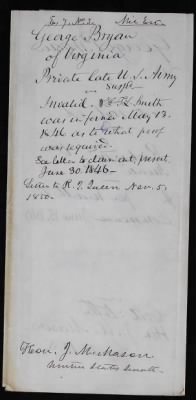 George Bryan
of Virginia
Private late U.S. Army
Invalid Smith
was informed May 13.
1846 as to what proof
was required.
See letter to claimant present
June 30. 1846 —
Letter to R. Queen Nov. 5,
1850.
Hon. J. M. Mason
United States Senate